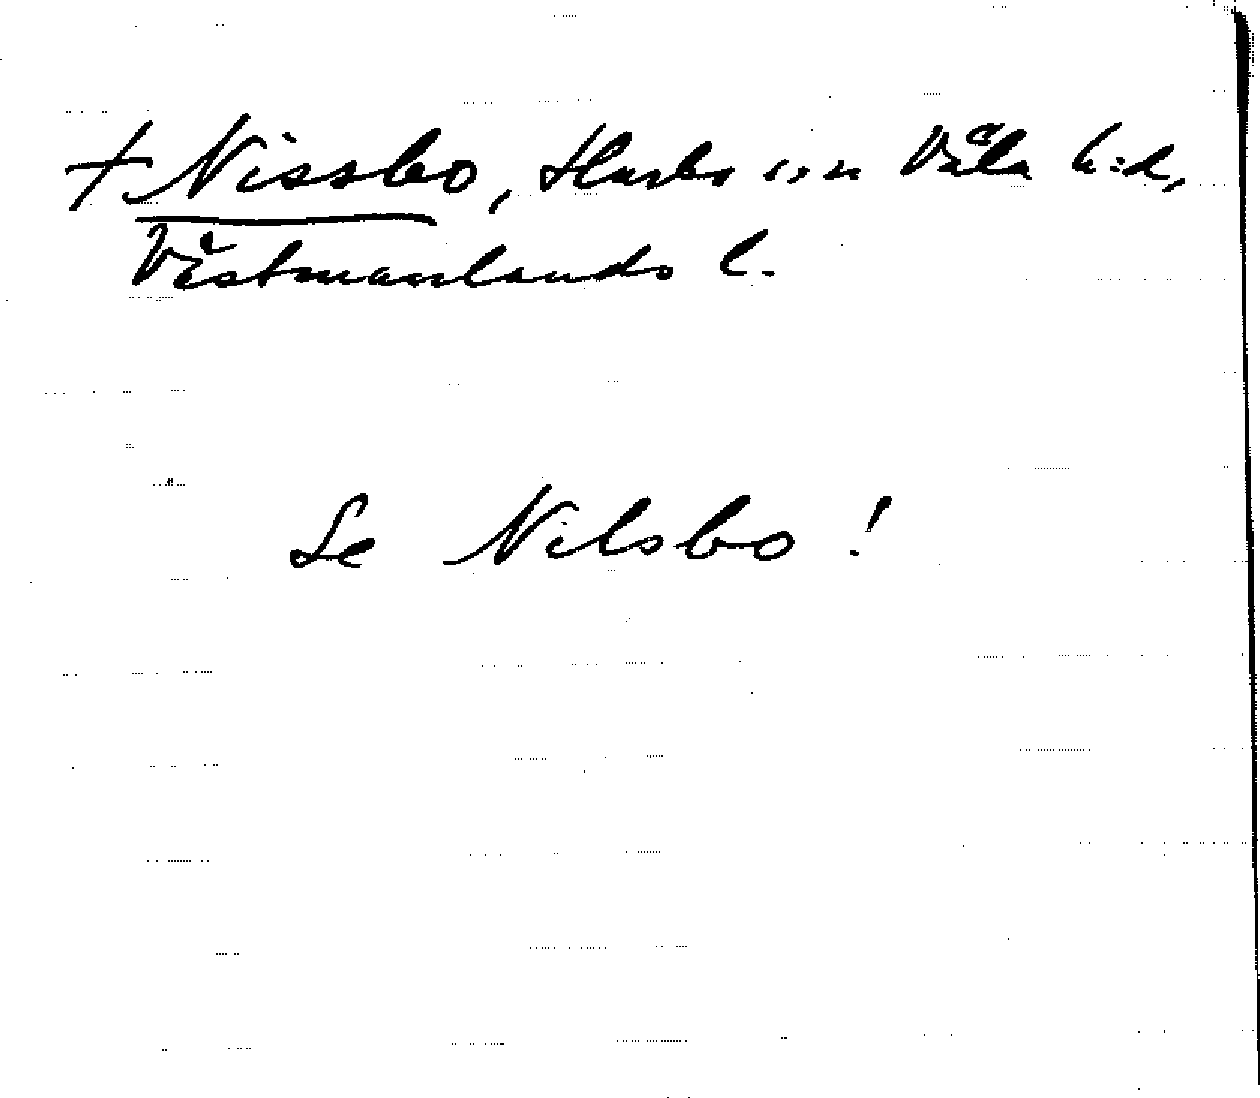 † Nissbo, Harbo s:n Våla h:d,
Västmanlands l.
Se Nilsbo!